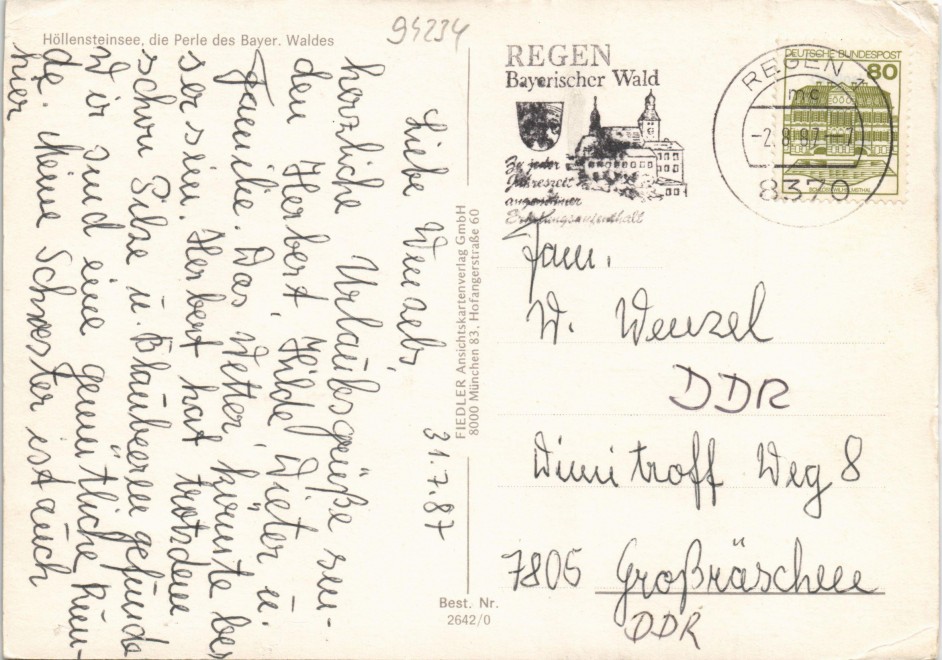 94234
Höllensteinsee, die Perle des Bayer. Waldes
31.7.87
Liebe Wenzels,
herzliche Urlaubsgrüße sen-
den Herbert, Hilde Dieter u.
Familie. Das Wetter könnte bes
ser sein. Herbert hat trotzdem
schon Pilze u. Blaubeeren gefunde
Wir sind eine gemütliche Run-
de. Meine Schwester ist auch
hier
FIEDLER Ansichtskartenverlag GmbH
8000 München 83, Hofangerstraße 60
Best. Nr.
2642/0
REGEN
Bayerischer Wald
Zu jeder
Jahreszeit
angenehmer
Erholungsaufenthalt
REGEN
mc
-2.8.87-7
8370
DEUTSCHE BUNDESPOST
80
SCHLOSS WILHELMSTHAL
Fam.
W. Wenzel
DDR
Dimitroff Weg 8
7805 Großräschen
DDR